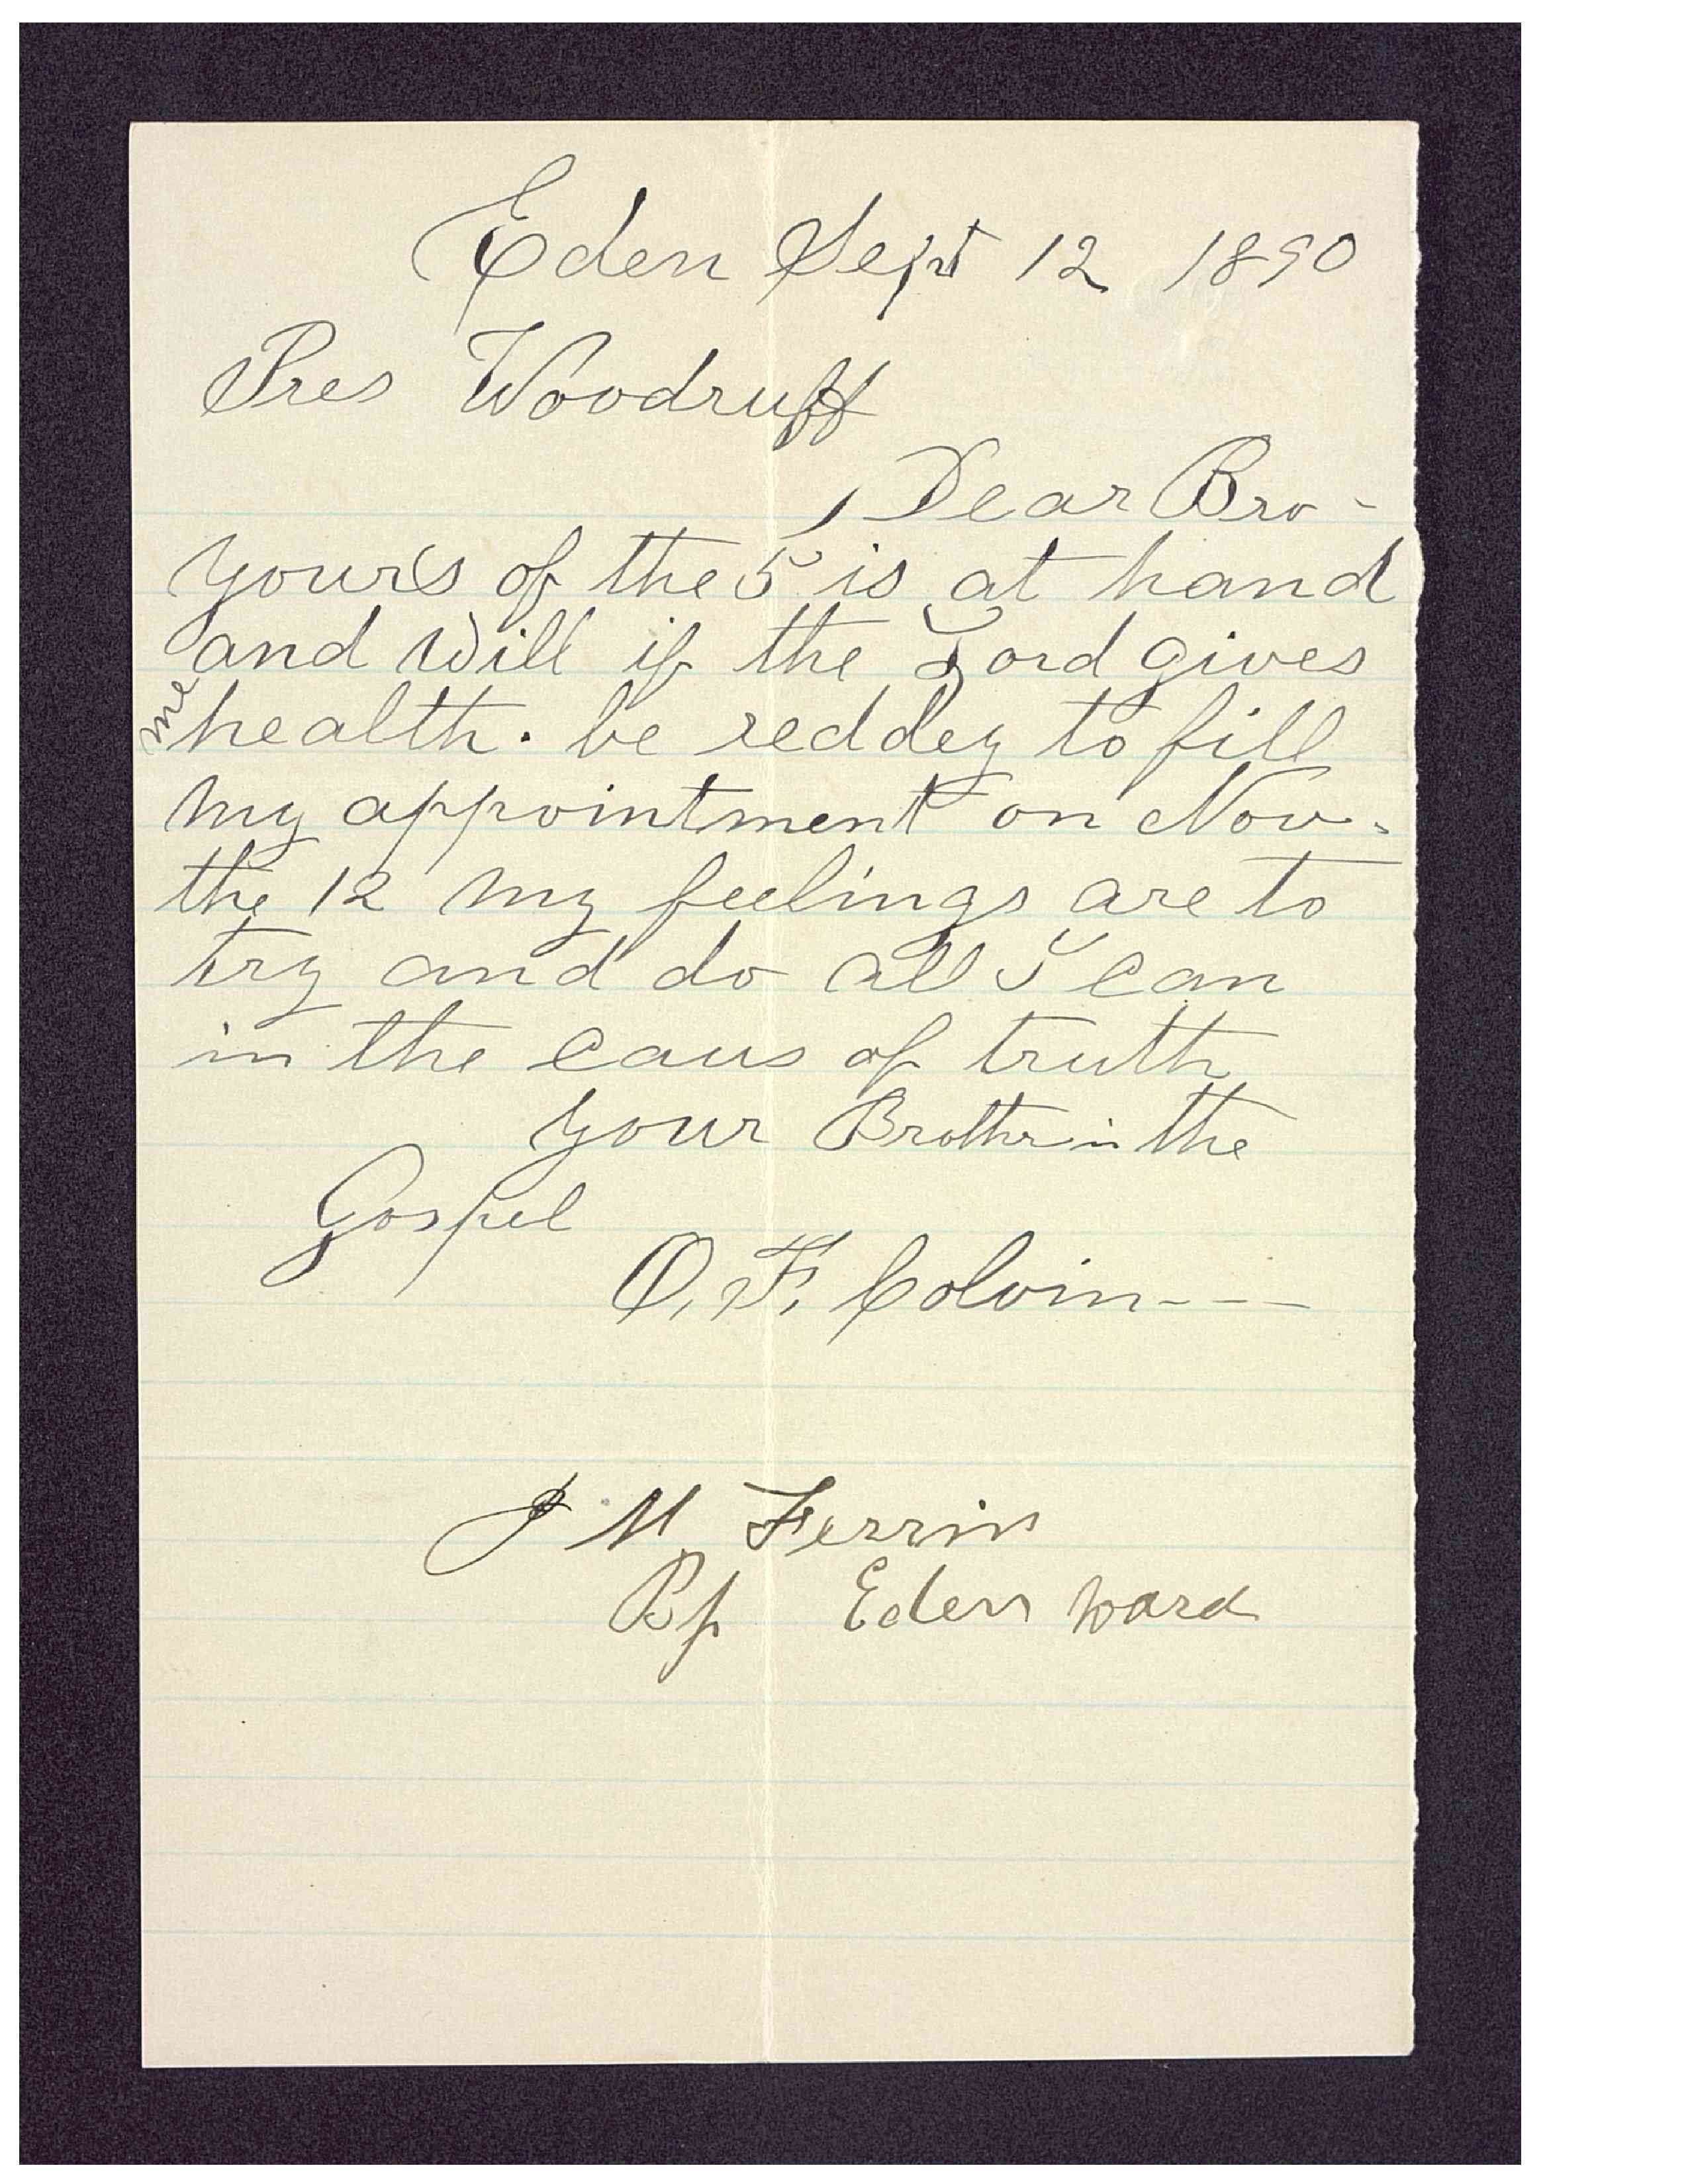 Eden Sept 12 1890
Pres Woodruff
Dear Bro-
yours of the 5 is at hand
and will if the Lord gives
me health. be reddey to fill
my appointment on Nov.
the 12 my feelings are to
try and do all I can
in the caus of truth
your Brother in the
Gospel
O. F. Colvin---
J M Ferrin
Bp Eden ward